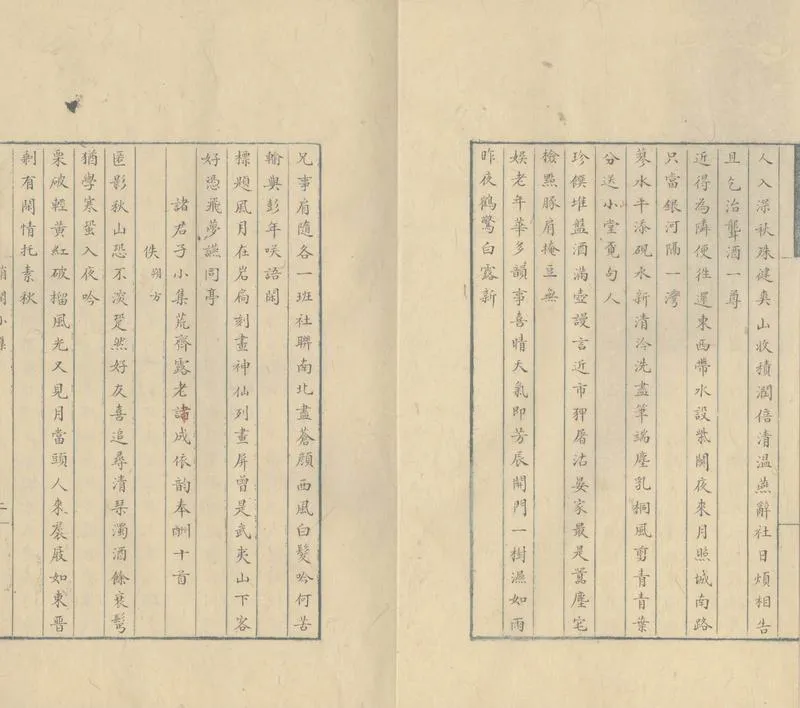 人入深秋殊健爽山收積潤倍清溫燕辭社日煩相告
且乞治聾酒一尊
近得為隣便往還東西帶水設柴關夜來月照城南路
只當銀河隔一灣
蓼水平添硯水新清泠洗盡筆端塵乳桐風剪青青葉
分送小堂覓句人
珍饌堆盤酒滿壺謾言近市狎屠沽晏家最是囂塵宅
檢點豚肩掩豆無
娛老年華多韻事喜晴天氣即芳辰開門一樹濕如雨
昨夜鶴驚白露新
兄事肩隨各一班社聯南北盡蒼顏西風白髮吟何苦
輸與彭年咲語閒
標題風月在岩扃刻畫神仙列畫屏曾是武夷山下客
好憑飛夢讌同亭
諸君子小集荒齊露老諸成依韵奉酬十首
佚朔方
匿影秋山恐不深跫然好友喜追尋清琹濁酒餘衰髩
猶學寒蛩入夜吟
栗破輕黃紅破榴風光又見月當頭人來裠屐如東晉
剩有閒情托素秋
小集
二